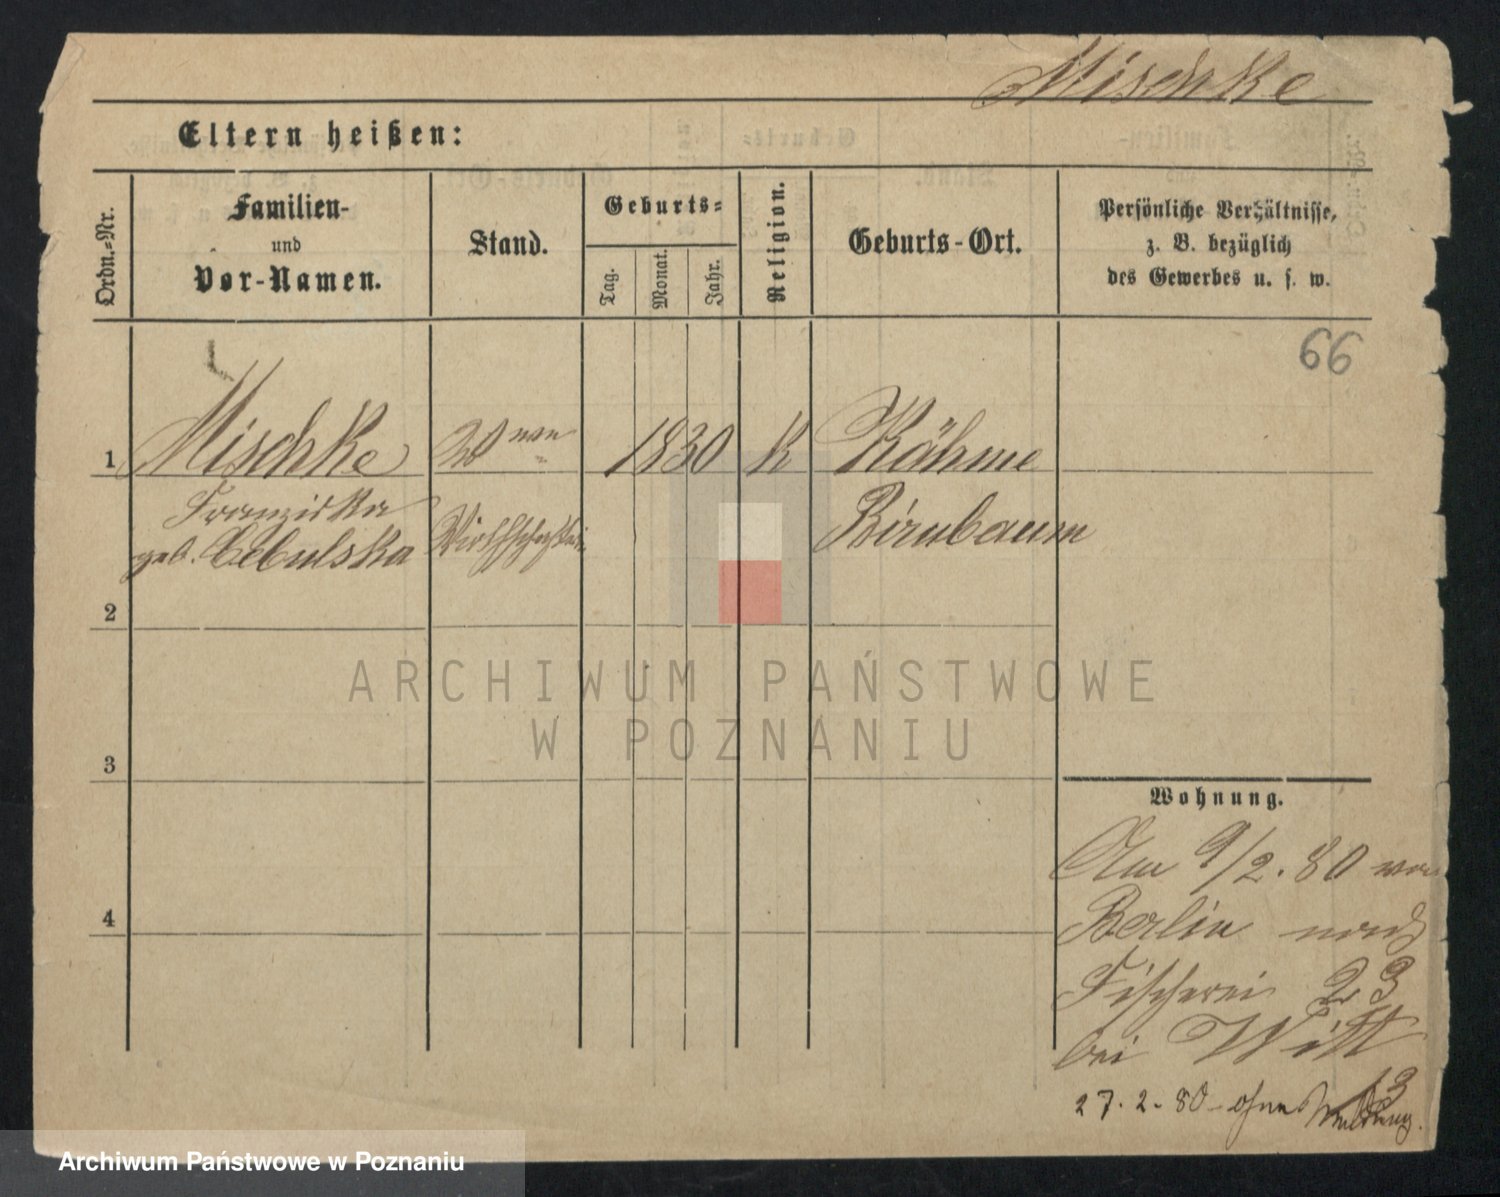 Mischke
Eltern heißen:
Ordn.=Nr.
Familien-
und
Vor-Namen.
Stand.
Geburts=
Tag.
Monat.
Jahr.
Religion.
Geburts-Ort.
Persönliche Verhältnisse,
z. B. bezüglich
des Gewerbes u. s. w.
66
1 Mischke Wwe 1830 K Kähme
Franziska
geb. Cebulska Wirthschafterin Birnbaum
2
3
4
Wohnung.
Am 9/2. 80 von
Berlin nach
Fischerei 23
bei Witt
13
27. 2. 80 ohne Meldung.
ARCHIWUM PAŃSTWOWE
W POZNANIU
Archiwum Państwowe w Poznaniu